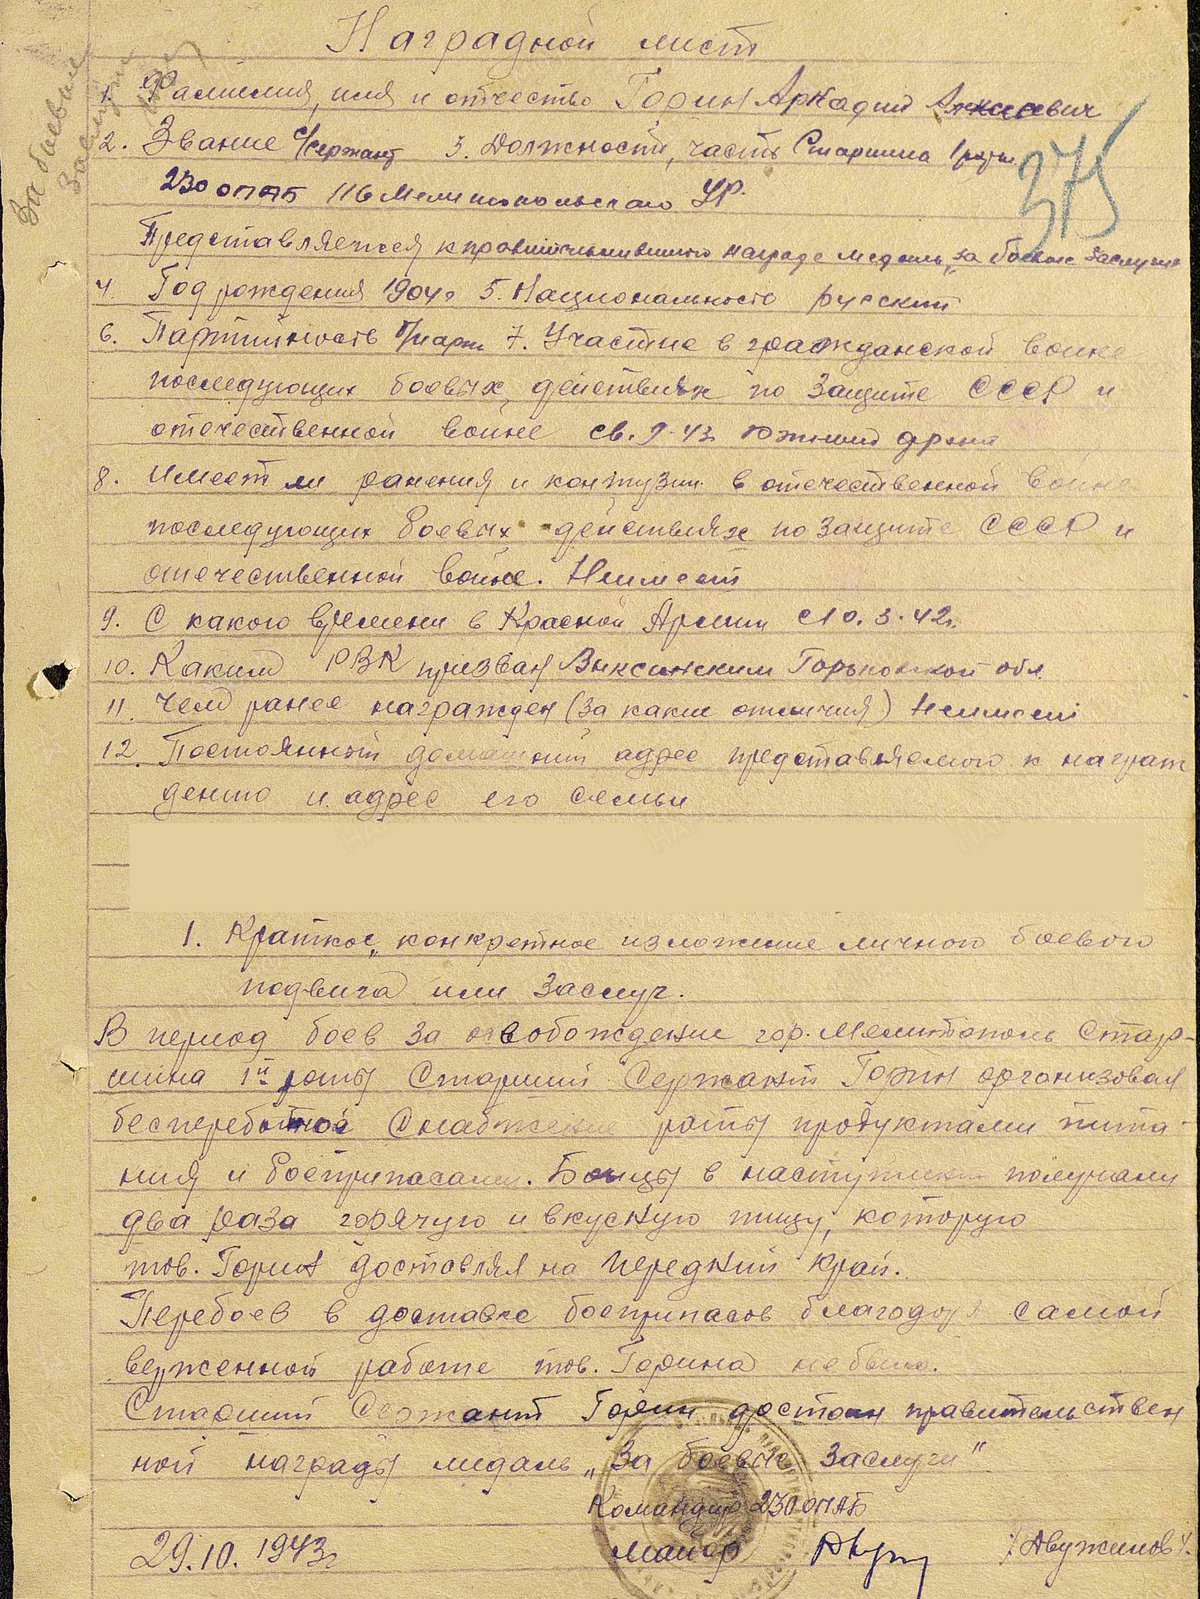 Наградной лист
За боевые
заслуги
1. Фамилия, имя и отчество Горин Аркадий
2. Звание с/сержант 3. Должность, часть Старшина 1 роты
375
230 ОПАБ 116 Мелитопольского УР.
Представляется к награде медаль „за боевые заслуги
4 Год рождения 1904г 5. Национальность русский
6. Партийность б/парт 7. Участие в гражданской войне
последующих боевых действиях по защите СССР и
отечественной войне св. 9-43 Южный фронт
8. Имеет ли ранения и контузии в отечественной войне
последующих боевых действиях по защите СССР и
отечественной войне. Неимеет
9. С какого времени в Красной Армии с 10.3.42г.
10. Каким РВК призван Выксинским Горьковской обл
11. Чем ранее награжден (за какие отличия) неимеет
12. Постоянный домашний адрес представляемого к награж
дению и адрес его семьи
1. Краткое, конкретное изложение личного боевого
подвига или заслуг.
В период боев за освобождение гор. Мелитополь Стар-
шина 1й роты Старший Сержант Горин организовал
бесперебойное снабжение роты продуктами пита-
ния и боеприпасами. Бойцы в наступлении получали
два раза горячую и вкусную пищу, которую
тов. Горин доставлял на передний край.
Перебоев в доставке боеприпасов благодаря самой
верженной работе тов. Горина небыло.
Старший Сержант Горин достоин правительствен
ной награды медаль „За боевые заслуги"
Командир 230 ОПАБ
29.10.1943г майор /Авужинов/